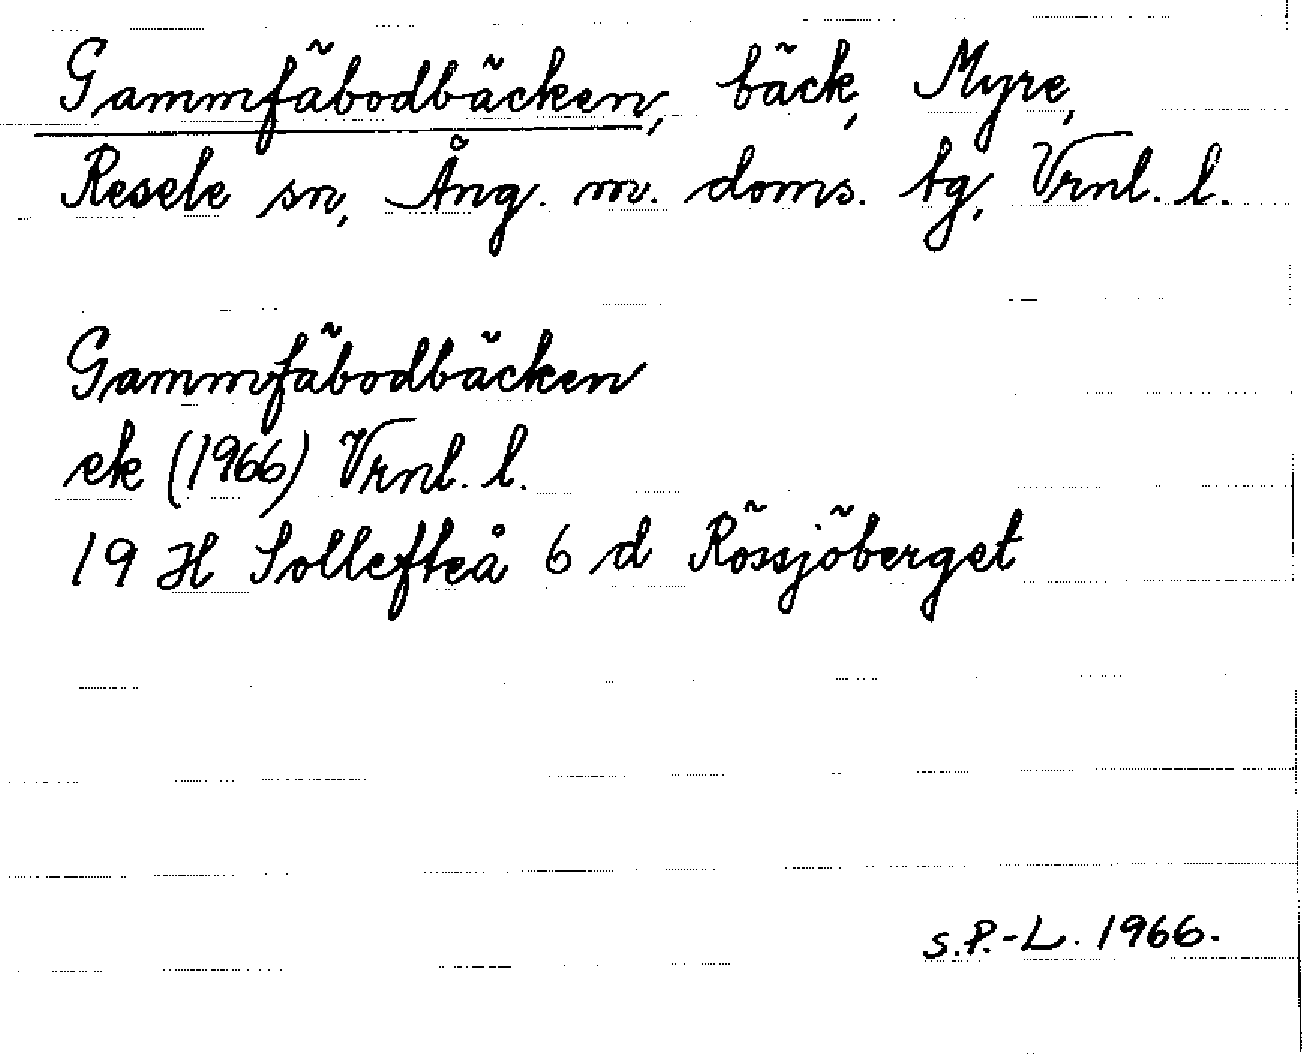 Gammfäbodbäcken, bäck, Myre,
Resele sn, Ång. m. doms. tg, Vrnl. l.
Gammfäbodbäcken
ek (1966) Vrnl. l.
19 H Sollefteå 6 d Rössjöberget
S.P.-L. 1966.